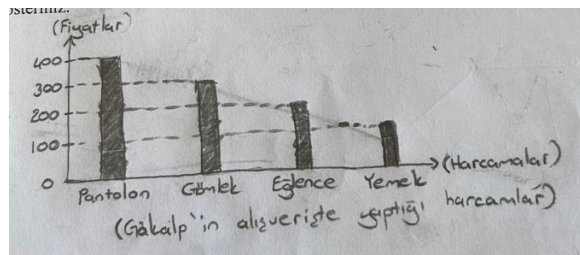 österiniz.
(Fiyatlar)
400
300
200
100
0
Pantolon Gömlek Eğlence Yemek (Harcamalar)
(Gökalp'in alışverişte yaptığı harcamlar)